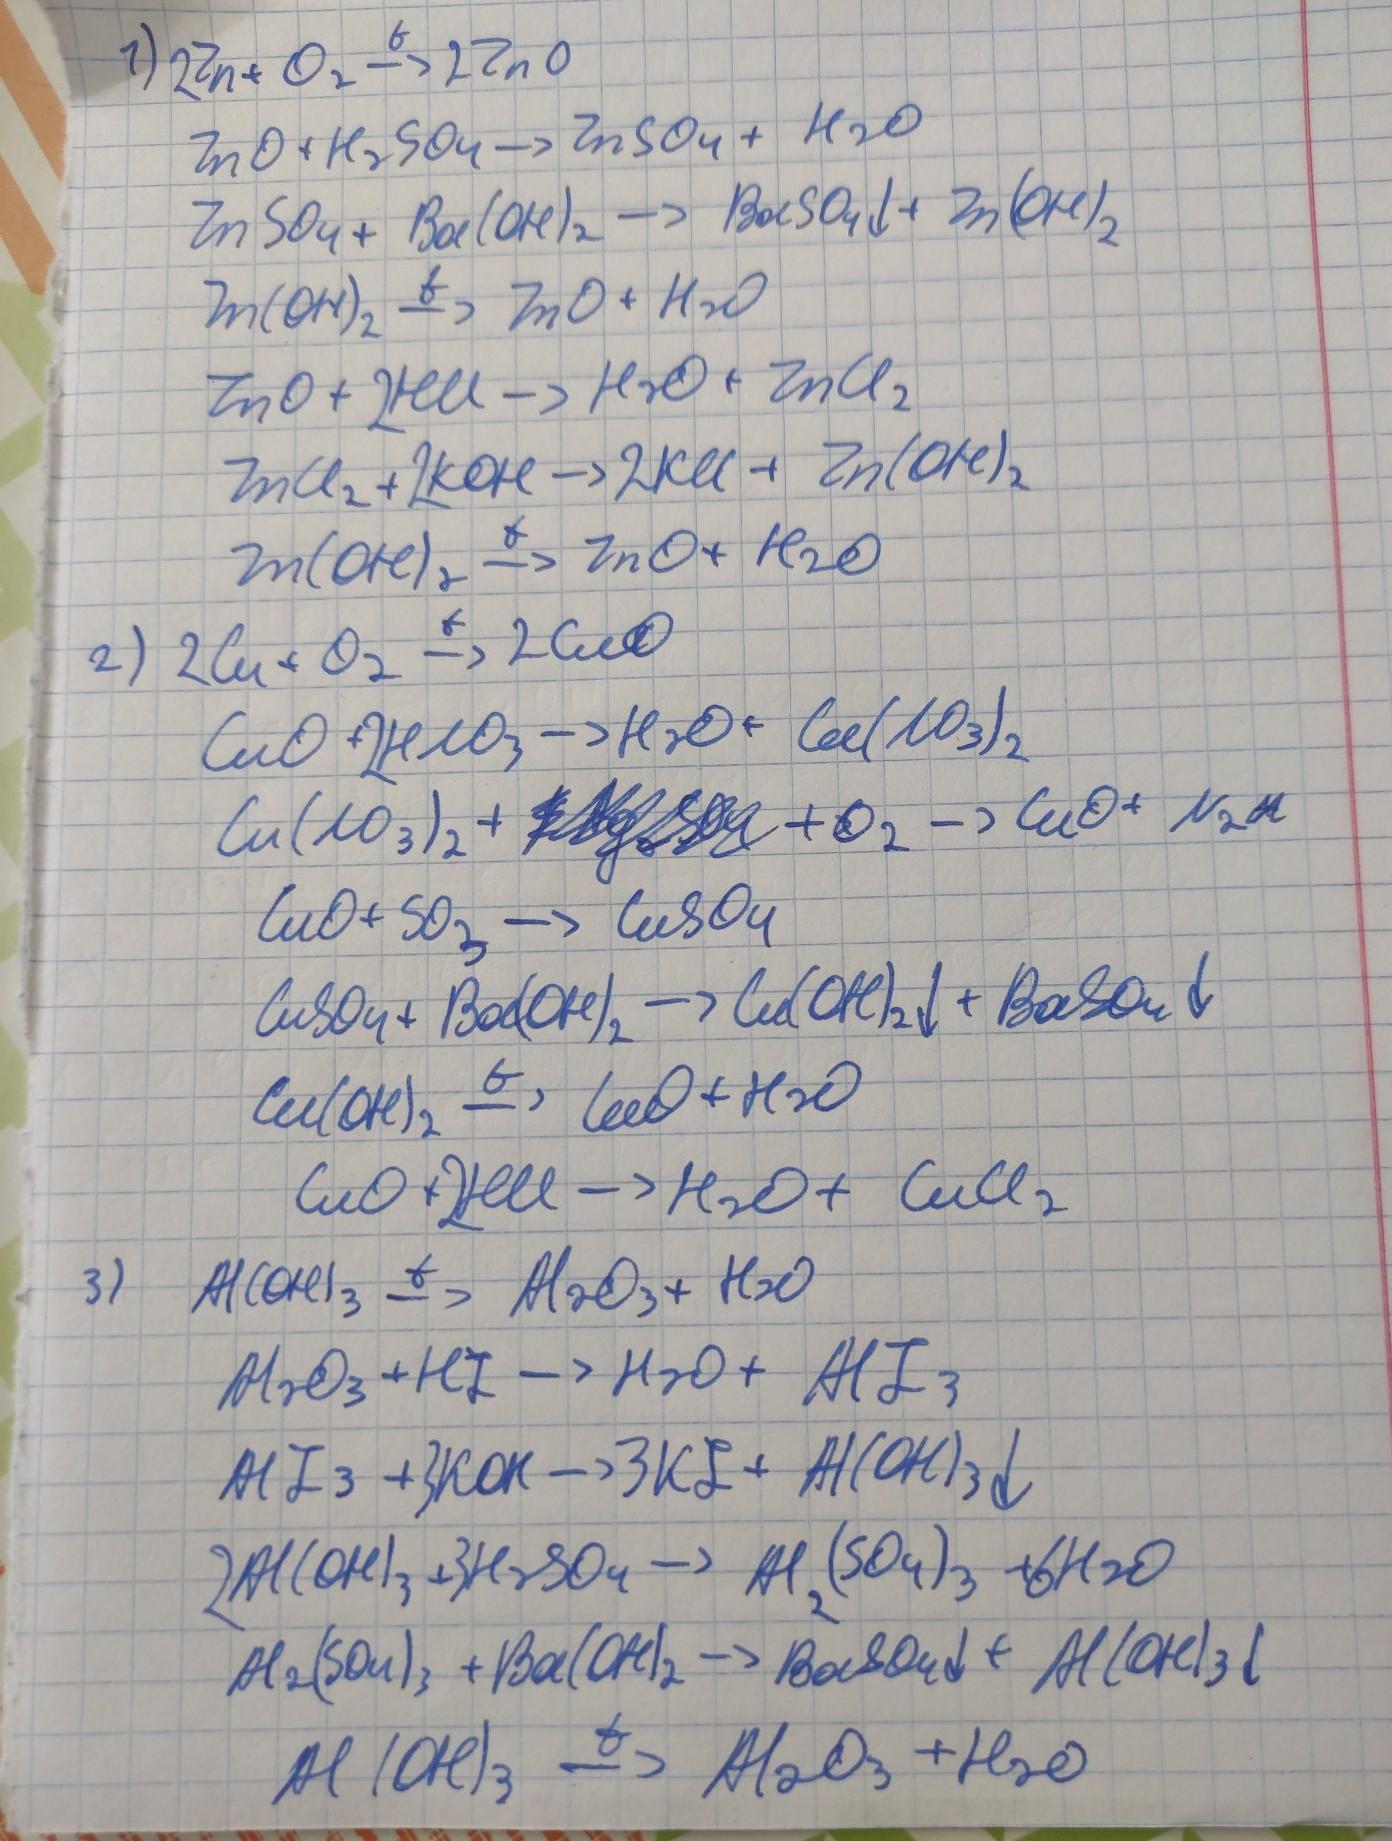 1) 2Zn + O2 t→ 2ZnO
ZnO + H2SO4 → ZnSO4 + H2O
ZnSO4 + Ba(OH)2 → BaSO4↓ + Zn(OH)2
Zn(OH)2 t→ ZnO + H2O
ZnO + 2HCl → H2O + ZnCl2
ZnCl2 + 2KOH → 2KCl + Zn(OH)2
Zn(OH)2 t→ ZnO + H2O
2) 2Cu + O2 t→ 2CuO
CuO + 2HNO3 → H2O + Cu(NO3)2
Cu(NO3)2 + + O2 → CuO + N2
CuO + SO3 → CuSO4
CuSO4 + Ba(OH)2 → Cu(OH)2↓ + BaSO4↓
Cu(OH)2 t→ CuO + H2O
CuO + 2HCl → H2O + CuCl2
3) Al(OH)3 t→ Al2O3 + H2O
Al2O3 + HI → H2O + AlI3
AlI3 + 3KOH → 3KI + Al(OH)3↓
2Al(OH)3 + 3H2SO4 → Al2(SO4)3 + 6H2O
Al2(SO4)3 + Ba(OH)2 → BaSO4↓ + Al(OH)3↓
Al(OH)3 t→ Al2O3 + H2O